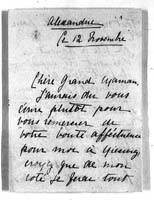 Alexandrie
Ce 12 Novembre
Chère Grand Maman
J'aurais du vous
écrire plutôt pour
vous remercier de
votre bonté affectueuse
pour moi à
croyez que de mon
côté je ferai tout